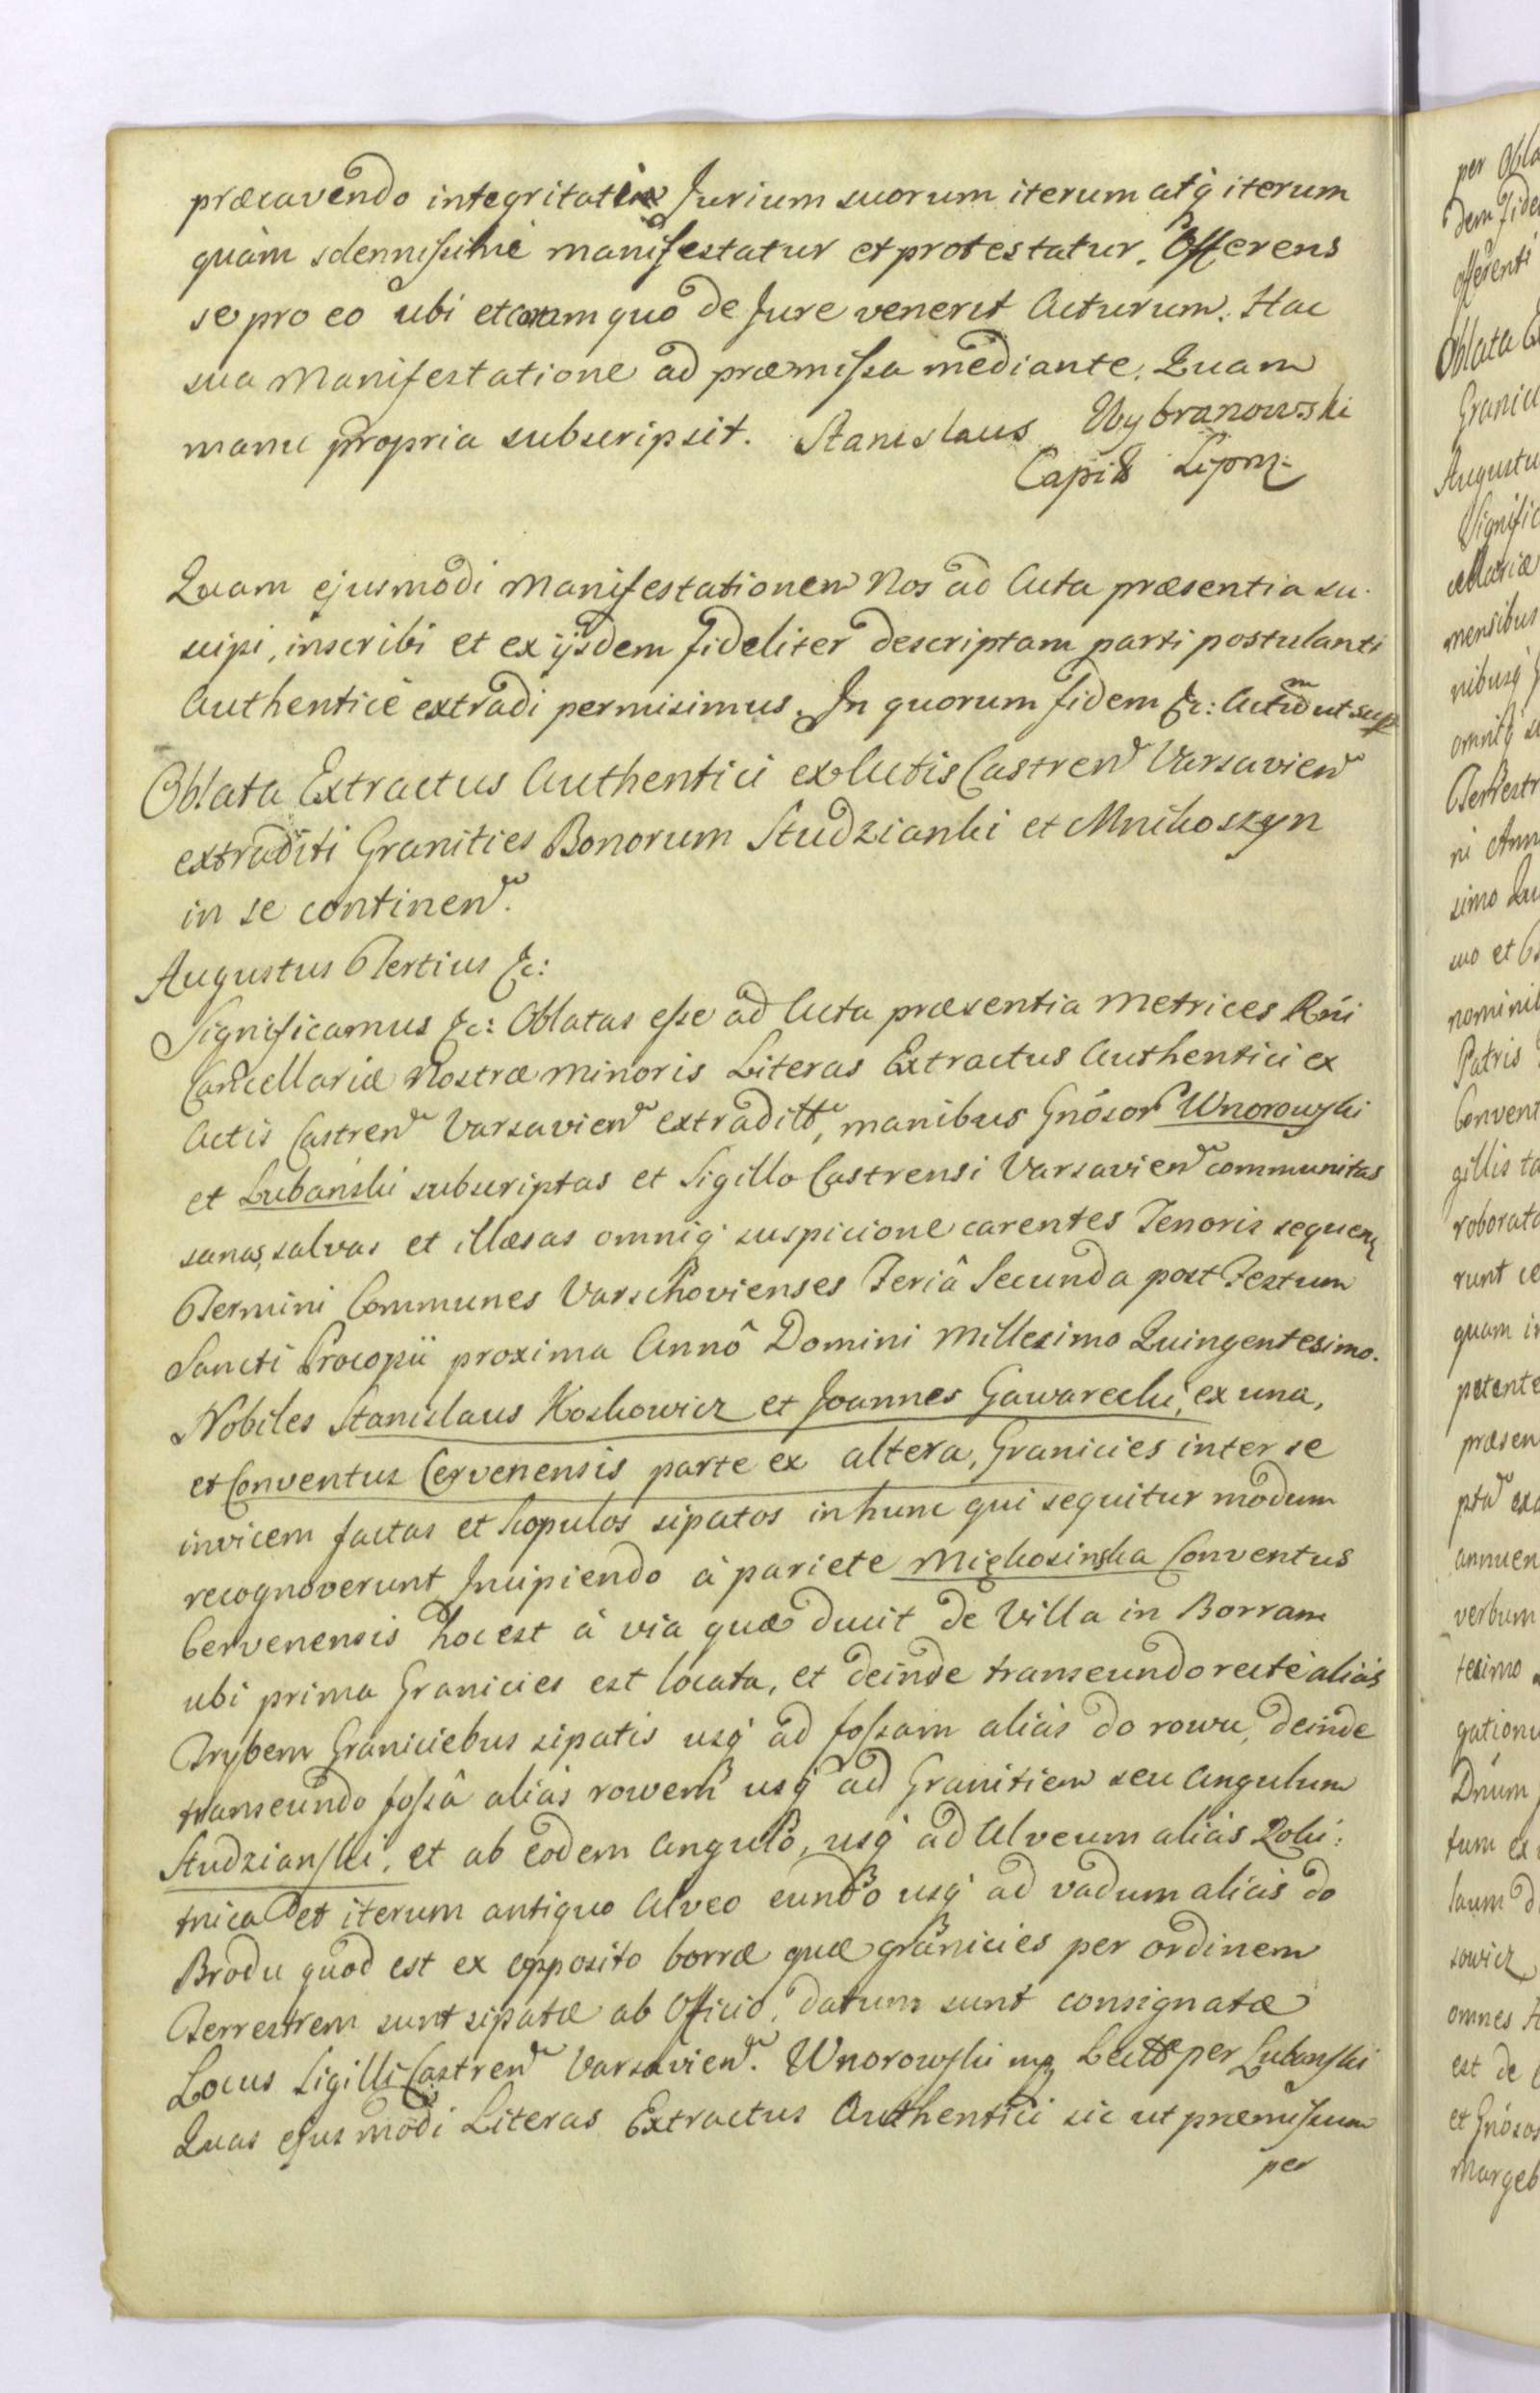 præcavendo integritati Jurium suorum iterum atq iterum
quàm solennissimè manifestatur et protestatur. Offerens
se pro eo ubi et coram quo de Jure venerit Acturum. Hac
sua Manifestatione ad præmissa mediante. Quam
manu propria subscripsit. Stanislaus Wybranowski
Capit Lipm:
Quam ejusmodi Manifestationem Nos ad Acta præsentia su-
scipi, inscribi et ex ijsdem fideliter descriptam parti postulanti
Authenticè extradi permisimus. In quorum fidem &c: Actum ut sup
Oblata Extractus Authentici ex Actis Castren Varsavien
extraditi Granities Bonorum Studzianki et Mnikoszyn
in se continen.
Augustus Tertius &c:
Significamus &c: Oblatas esse ad Acta præsentia Metrices Rni
Cancellariæ Nostræ Minoris Literas Extractus Authentici ex
Actis Castren Varsavien extradit, manibus Gnósor Wnorowski
et Lubański subscriptas et Sigillo Castrensi Varsavien communitas
sanas, salvas et illæsas omniq suspicione carentes Tenoris sequen
Termini Communes Varschovienses Feriâ Secunda post Festum
Sancti Procopii proxima Annô Domini Millesimo Quingentesimo.
Nobiles Stanislaus Koskowicz et Joannes Gawarecki, ex una,
et Conventus Cervenensis parte ex altera, Granicies inter se
invicem factas et Scopulos sipatos in hunc qui sequitur modum
recognoverunt Incipiendo à pariete Miękosinska Conventus
Cervenensis hoc est à via quæ ducit de Villa in Borram
ubi prima Granicies est locata, et deinde transeundo rectè aliàs
Trybem Graniciebus sipatis usq ad fossam aliàs do rowu, deinde
transeundo fossâ aliàs rowem usq ad Granitiem seu Angulum
Studzianski, et ab eodem Angulo, usq ad Alveum aliàs Roki:
tnica et iterum antiquo Alveo eundo usq ad vadum aliàs do
Brodu quod est ex opposito borræ quæ granicies per ordinem
Terrestrem sunt sipatæ ab Officio, datum sunt consignatæ
Locus Sigilli Castren Varsavien. Wnorowski mp Lect per Lubanski
Quas ejusmodi Literas Extractus Authentici sic ut præmissum
per